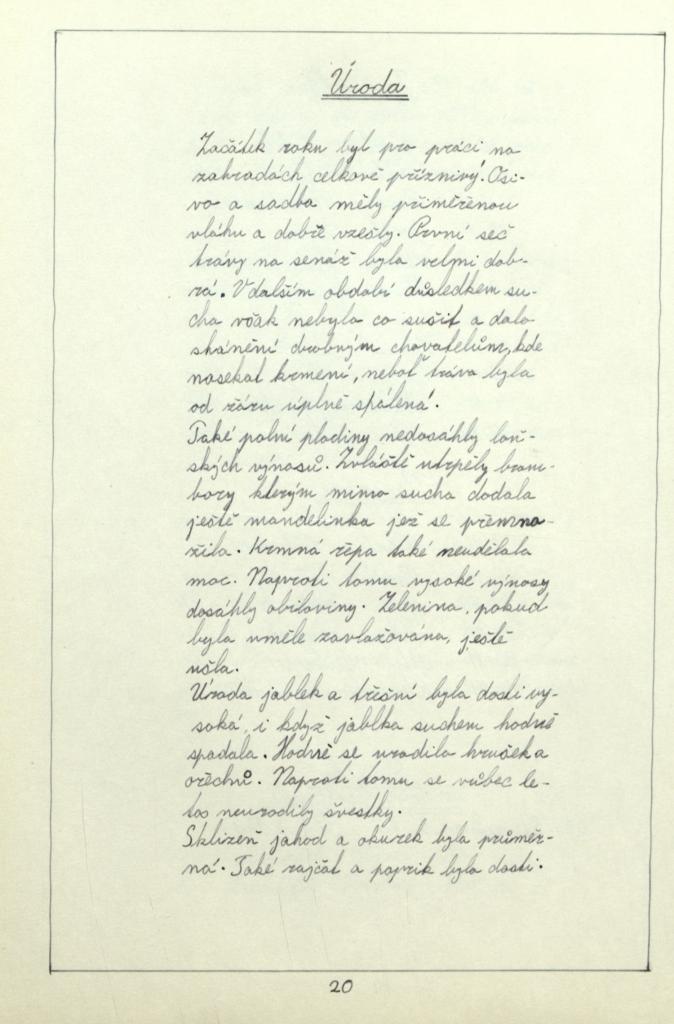 Úroda
Začátek roku byl pro práci na
zahradách celkově příznivý. Osi-
vo a sadba měly přiměřenou
vláhu a dobře vzešly. První seč
trávy na senáž byla velmi dob-
rá. V dalším období důsledkem su-
cha však nebylo co sušit a dalo
shánění drobným chovatelům, kde
nasekat krmení, neboť tráva byla
od žáru úplně spálená.
Také polní plodiny nedosáhly loň-
ských výnosů. Zvláště utrpěly bram-
bory kterým mimo sucha dodala
ještě mandelinka jež se přemno-
žila. Krmná řepa také neudělala
moc. Naproti tomu vysoké výnosy
dosáhly obiloviny. Zelenina, pokud
byla uměle zavlažována, ještě
ušla.
Úroda jablek a třešní byla dosti vy-
soká, i když jablka suchem hodně
spadala. Hodně se urodilo hrušek a
ořechů. Naproti tomu se vůbec le-
tos neurodily švestky.
Sklizeň jahod a okurek byla průměr-
ná. Také rajčat a paprik bylo dosti.
20